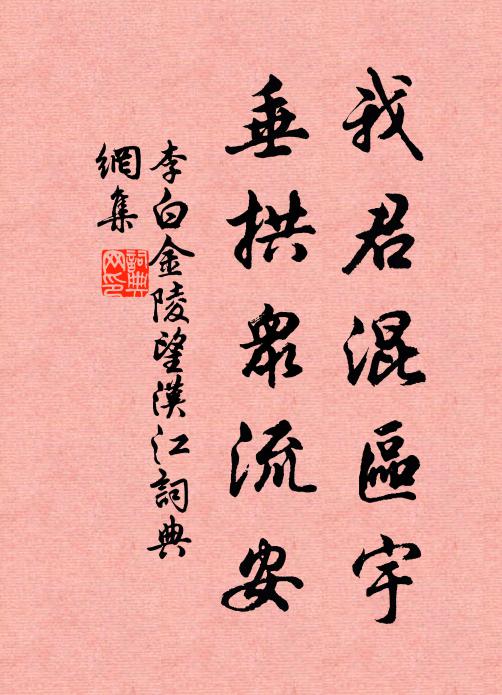 我君混區宇
垂拱眾流安
李白金陵望漢江詞典
網集
詞典網印